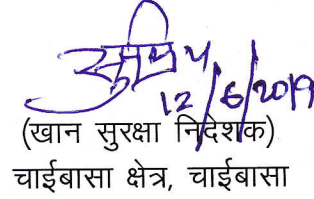 12/6/2019
(खान सुरक्षा निदेशक)
चाईबासा क्षेत्र, चाईबासा